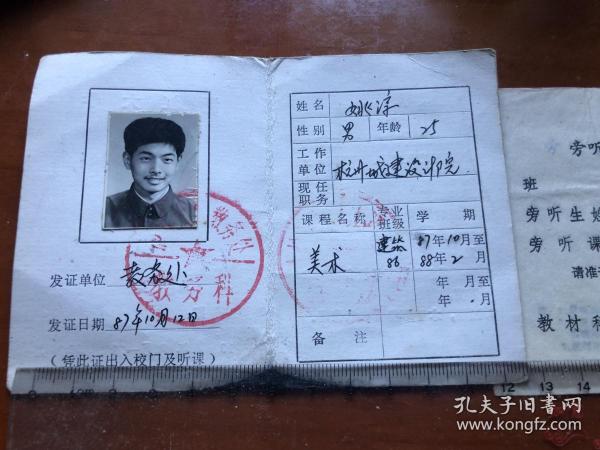 发证单位 教务处
发证日期 87年10月12日
(凭此证出入校门及听课)
教务科
姓名 姚淳
性别 男 年龄 25
工作单位 杭州城建设计院
现任职务
课程名称 专业班级 学期
美术 建筑86 87年10月至
88年2月
年 月至
年 月
备注
旁听
班
旁听生姓
旁听课
请准
教材科
12 13 14
孔夫子旧书网
www.kongfz.com